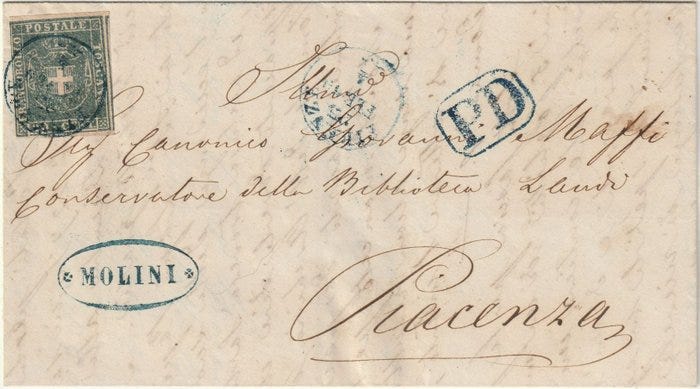 FRANCOBOLLO POSTALE TOSCANO
Illmo
Sig Canonico Giovanni Maffi
PD
Conservatore della Biblioteca Landi
MOLINI
Piacenza